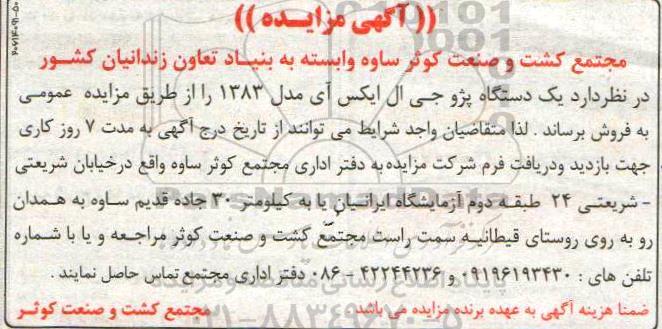 (( آگهی مزایـده ))
مجتمع کشت و صنعت کوثر ساوه وابسته به بنیـاد تعاون زندانیان کشـور
در نظردارد یک دستگاه پژو جـی ال ایکس آی مدل ۱۳۸۳ را از طریق مزایده عمومـی
به فروش برساند . لذا متقاضیان واجد شرایط می توانند از تاریخ درج آگهی به مدت ۷ روز کاری
جهت بازدید ودریافت فرم شرکت مزایده به دفتر اداری مجتمع کوثر ساوه واقع درخیابان شریعتی
- شریعتـی ۲۴ طبقـه دوم آزمایشگاه ایرانیـان یا به کیلومتر ۳۰ جاده قدیم سـاوه به همدان
رو به روی روستای قیطانیـه سمت راست مجتمع کشت و صنعت کوثر مراجعـه و یا با شـماره
تلفن های : ۰۹۱۹۶۱۹۳۴۳۰ و ۴۲۲۴۴۲۳۶ - ۰۸۶ دفتر اداری مجتمع تماس حاصل نمایند .
ضمنا هزینه آگهی به عهده برنده مزایده می باشد. مجتمع کشت و صنعت کوثـر
ParsNamadData
۰۲۱-۸۸۳۴۹۶۷۰-۵